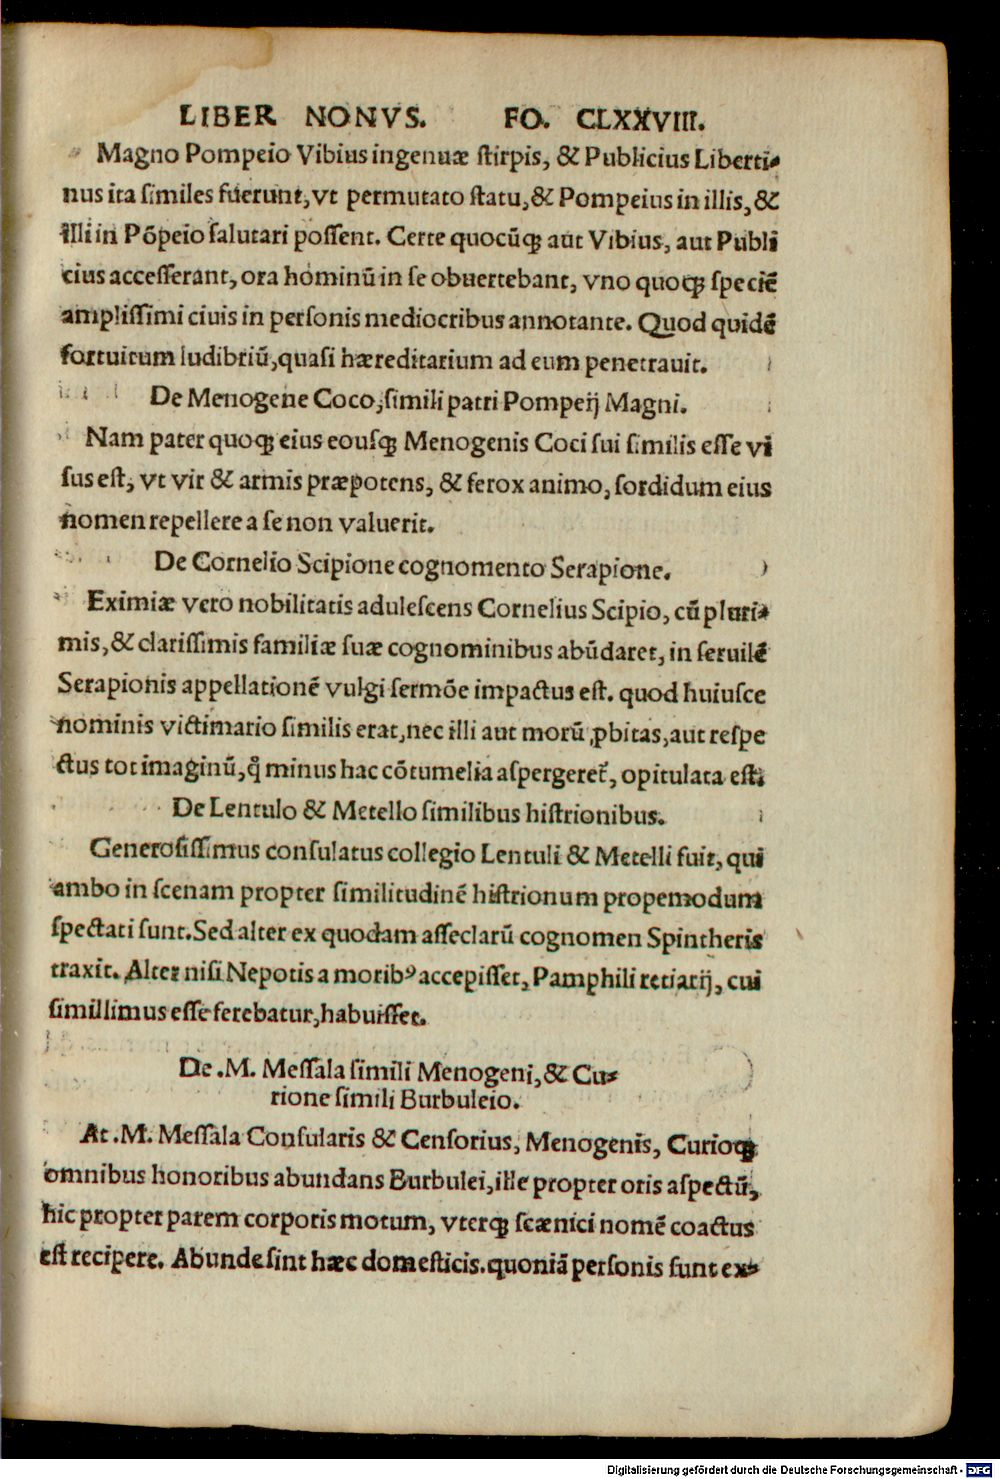 LIBER NONVS. FO. CLXXVIII.
Magno Pompeio Vibius ingenuæ ſtirpis, & Publicius Liberti-
nus ita ſimiles fuerunt, vt permutato ſtatu, & Pompeius in illis, &
illi in Põpeio ſalutari poſſent. Certe quocũꝗ aut Vibius, aut Publi
cius acceſſerant, ora hominũ in ſe obuertebant, vno quoꝗ ſpeciẽ
ampliſſimi ciuis in perſonis mediocribus annotante. Quod quidẽ
fortuitum ludibriũ, quaſi hæreditarium ad eum penetrauit.
De Menogene Coco, ſimili patri Pompeij Magni.
Nam pater quoꝗ eius eouſꝗ Menogenis Coci ſui ſimilis eſſe vi
ſus eſt, vt vir & armis præpotens, & ferox animo, ſordidum eius
nomen repellere a ſe non valuerit.
De Cornelio Scipione cognomento Serapione.
Eximiæ vero nobilitatis aduleſcens Cornelius Scipio, cũ pluri-
mis, & clariſſimis familiæ ſuæ cognominibus abũdaret, in ſeruilẽ
Serapionis appellationẽ vulgi ſermõe impactus eſt. quod huiuſce
nominis victimario ſimilis erat, nec illi aut morũ ꝓbitas, aut reſpe
ctus tot imaginũ, q̃ minus hac cõtumelia aſpergeret᷑, opitulata eſt.
De Lentulo & Metello ſimilibus hiſtrionibus.
Generoſiſſimus conſulatus collegio Lentuli & Metelli fuit, qui
ambo in ſcenam propter ſimilitudinẽ hiſtrionum propemodum
ſpectati ſunt. Sed alter ex quodam aſſeclarũ cognomen Spintheris
traxit. Alter niſi Nepotis a moribꝰ accepiſſet, Pamphili retiarij, cui
ſimillimus eſſe ferebatur, habuiſſet.
De .M. Meſſala ſimili Menogeni, & Cu-
rione ſimili Burbuleio.
At .M. Meſſala Conſularis & Cenſorius, Menogenis, Curioꝗ
omnibus honoribus abundans Burbulei, ille propter oris aſpectũ,
hic propter parem corporis motum, vterꝗ ſcænici nomẽ coactus
eſt recipere. Abunde ſint hæc domeſticis. quoniã perſonis ſunt ex-
Digitalisierung gefördert durch die Deutsche Forschungsgemeinschaft - DFG